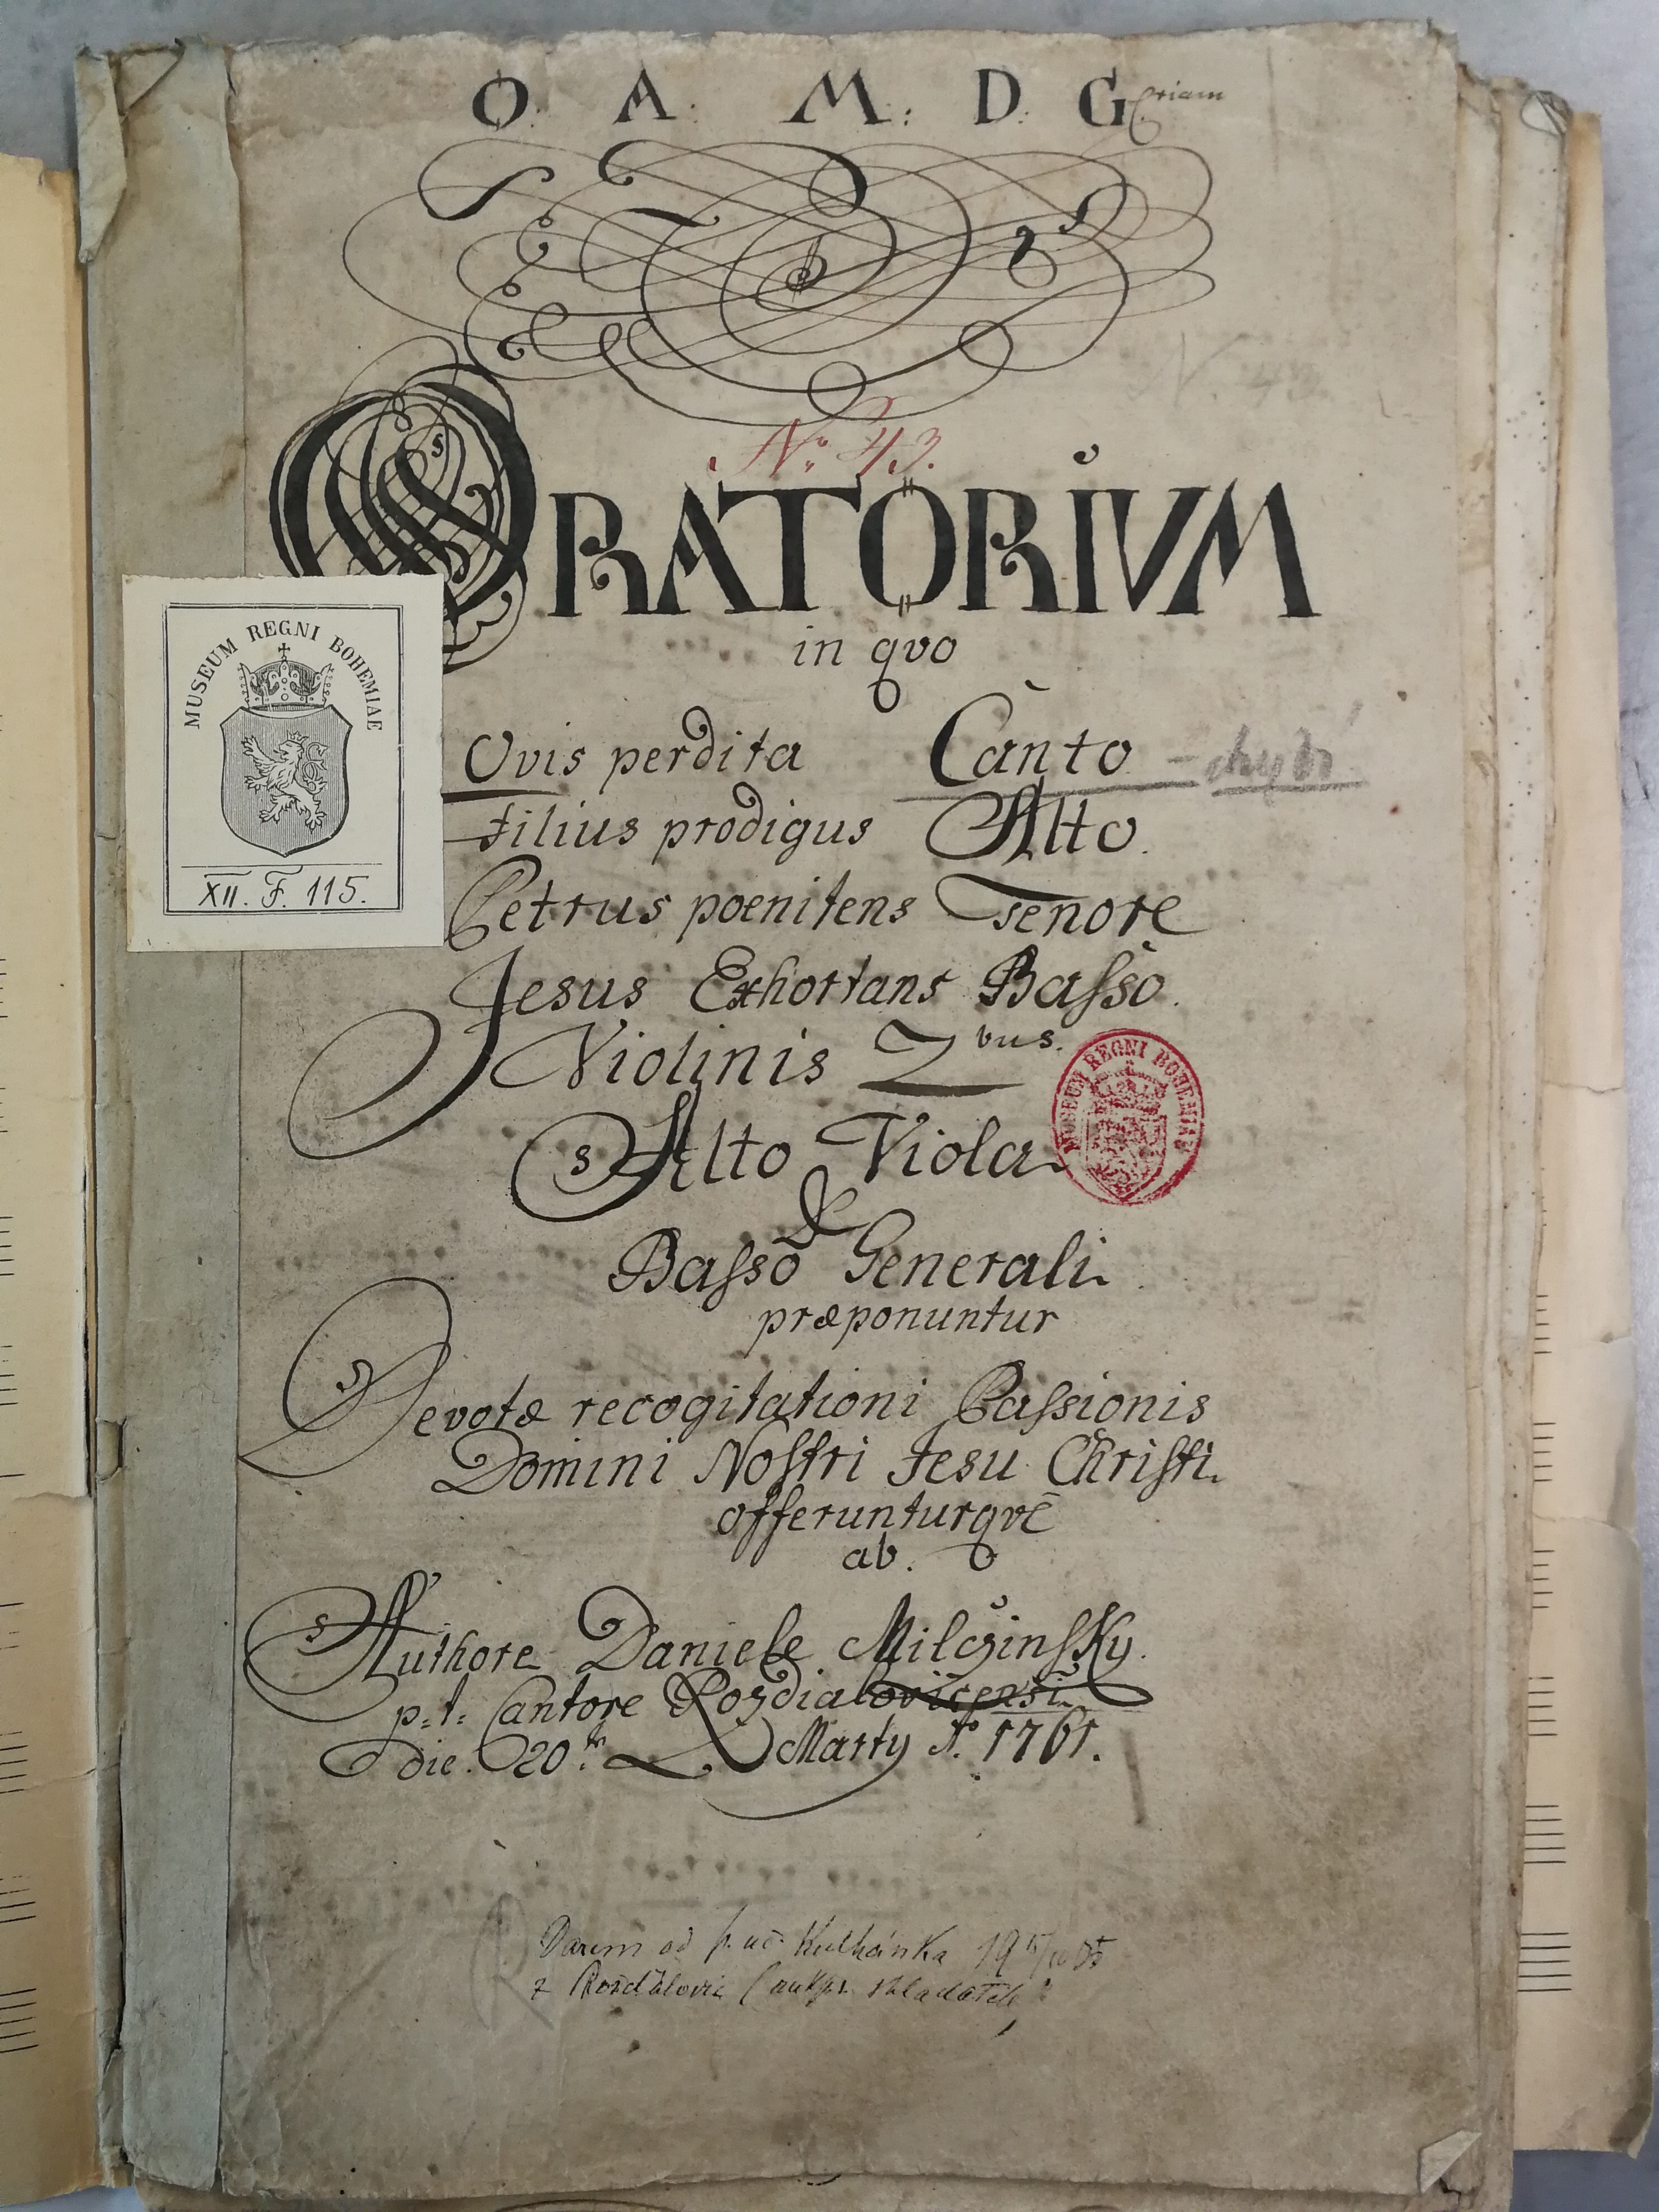 O: A: M: D: G:oriam
N. 43
No: 43.
ORATORIVM
in qvo
Ovis perdita Canto - chybí
Filius prodigus Alto.
Petrus poenitens Tenore
Jesus Exhortans Baſso.
Violinis 2bus.
Alto Viola
&
Baſso Generali.
præponuntur
Devotæ recogitationi Paſsionis
Domini Noſtri Jesu Chriſti.
offerunturqvè
ab.
Authore Daniele Milczinſky.
p:t: Cantore Rozdialovicensi
die. 20. Marty Ao. 1761.
MUSEUM REGNI BOHEMIAE
XII. F. 115.
MUSEUM REGNI BOHEMIAE
Darem od p. uč. Kulhánka
z Rožďalovic